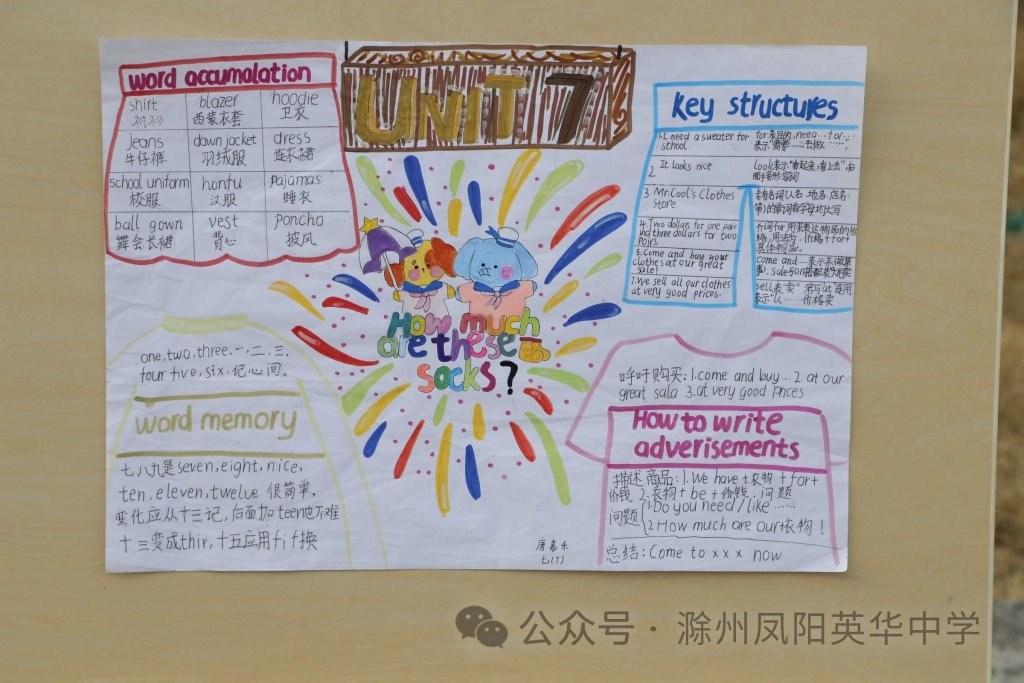 UNIT 7
word accumalation
shirt blazer hoodie
衬衫 西装外套 卫衣
jeans dawn jacket dress
牛仔裤 羽绒服 连衣裙
school uniform hanfu pajamas
校服 汉服 睡衣
ball gown vest poncho
舞会长裙 背心 披风
How much
are these
socks?
Key structures
1.I need a sweater for
school
for表目的,need...+for...
表示"需要……去做
2 It looks nice
look表示"看起来,看上去",后
面+形容词
3 Mr.Cool's Clothes
Store
表专名词(人名、地名、店名
等)的单词首字母均大写
4. Two dollars for one pair
and three dollars for two
pairs
介词for用来表达物品的价
格,用法为:价格+for+
具体物品。
5.Come and buy your
clothes at our great
sale!
come and...表示来(做某
事)
7.We sell all our clothes
at very good prices.
sell表"卖"常与at连用
表示"以……价格卖
one,two,three,一,二,三,
four five,six,记心间。
word memory
七八九是seven,eight,nice,
ten,eleven,twelve 很简单,
变化应从十三记,后面加teen也不难
十三变成thir,十五应用fif换
呼吁购买:1.come and buy...2 at our
great sala 3.at very good prices
How to write
adverisements
描述商品:1.We have+衣物+for+
价钱 2.衣物+be+价钱.问题
问题 1.Do you need/like……
2 How much are our衣物!
总结:Come to x x x now
唐嘉禾
七(7)
公众号·滁州凤阳英华中学